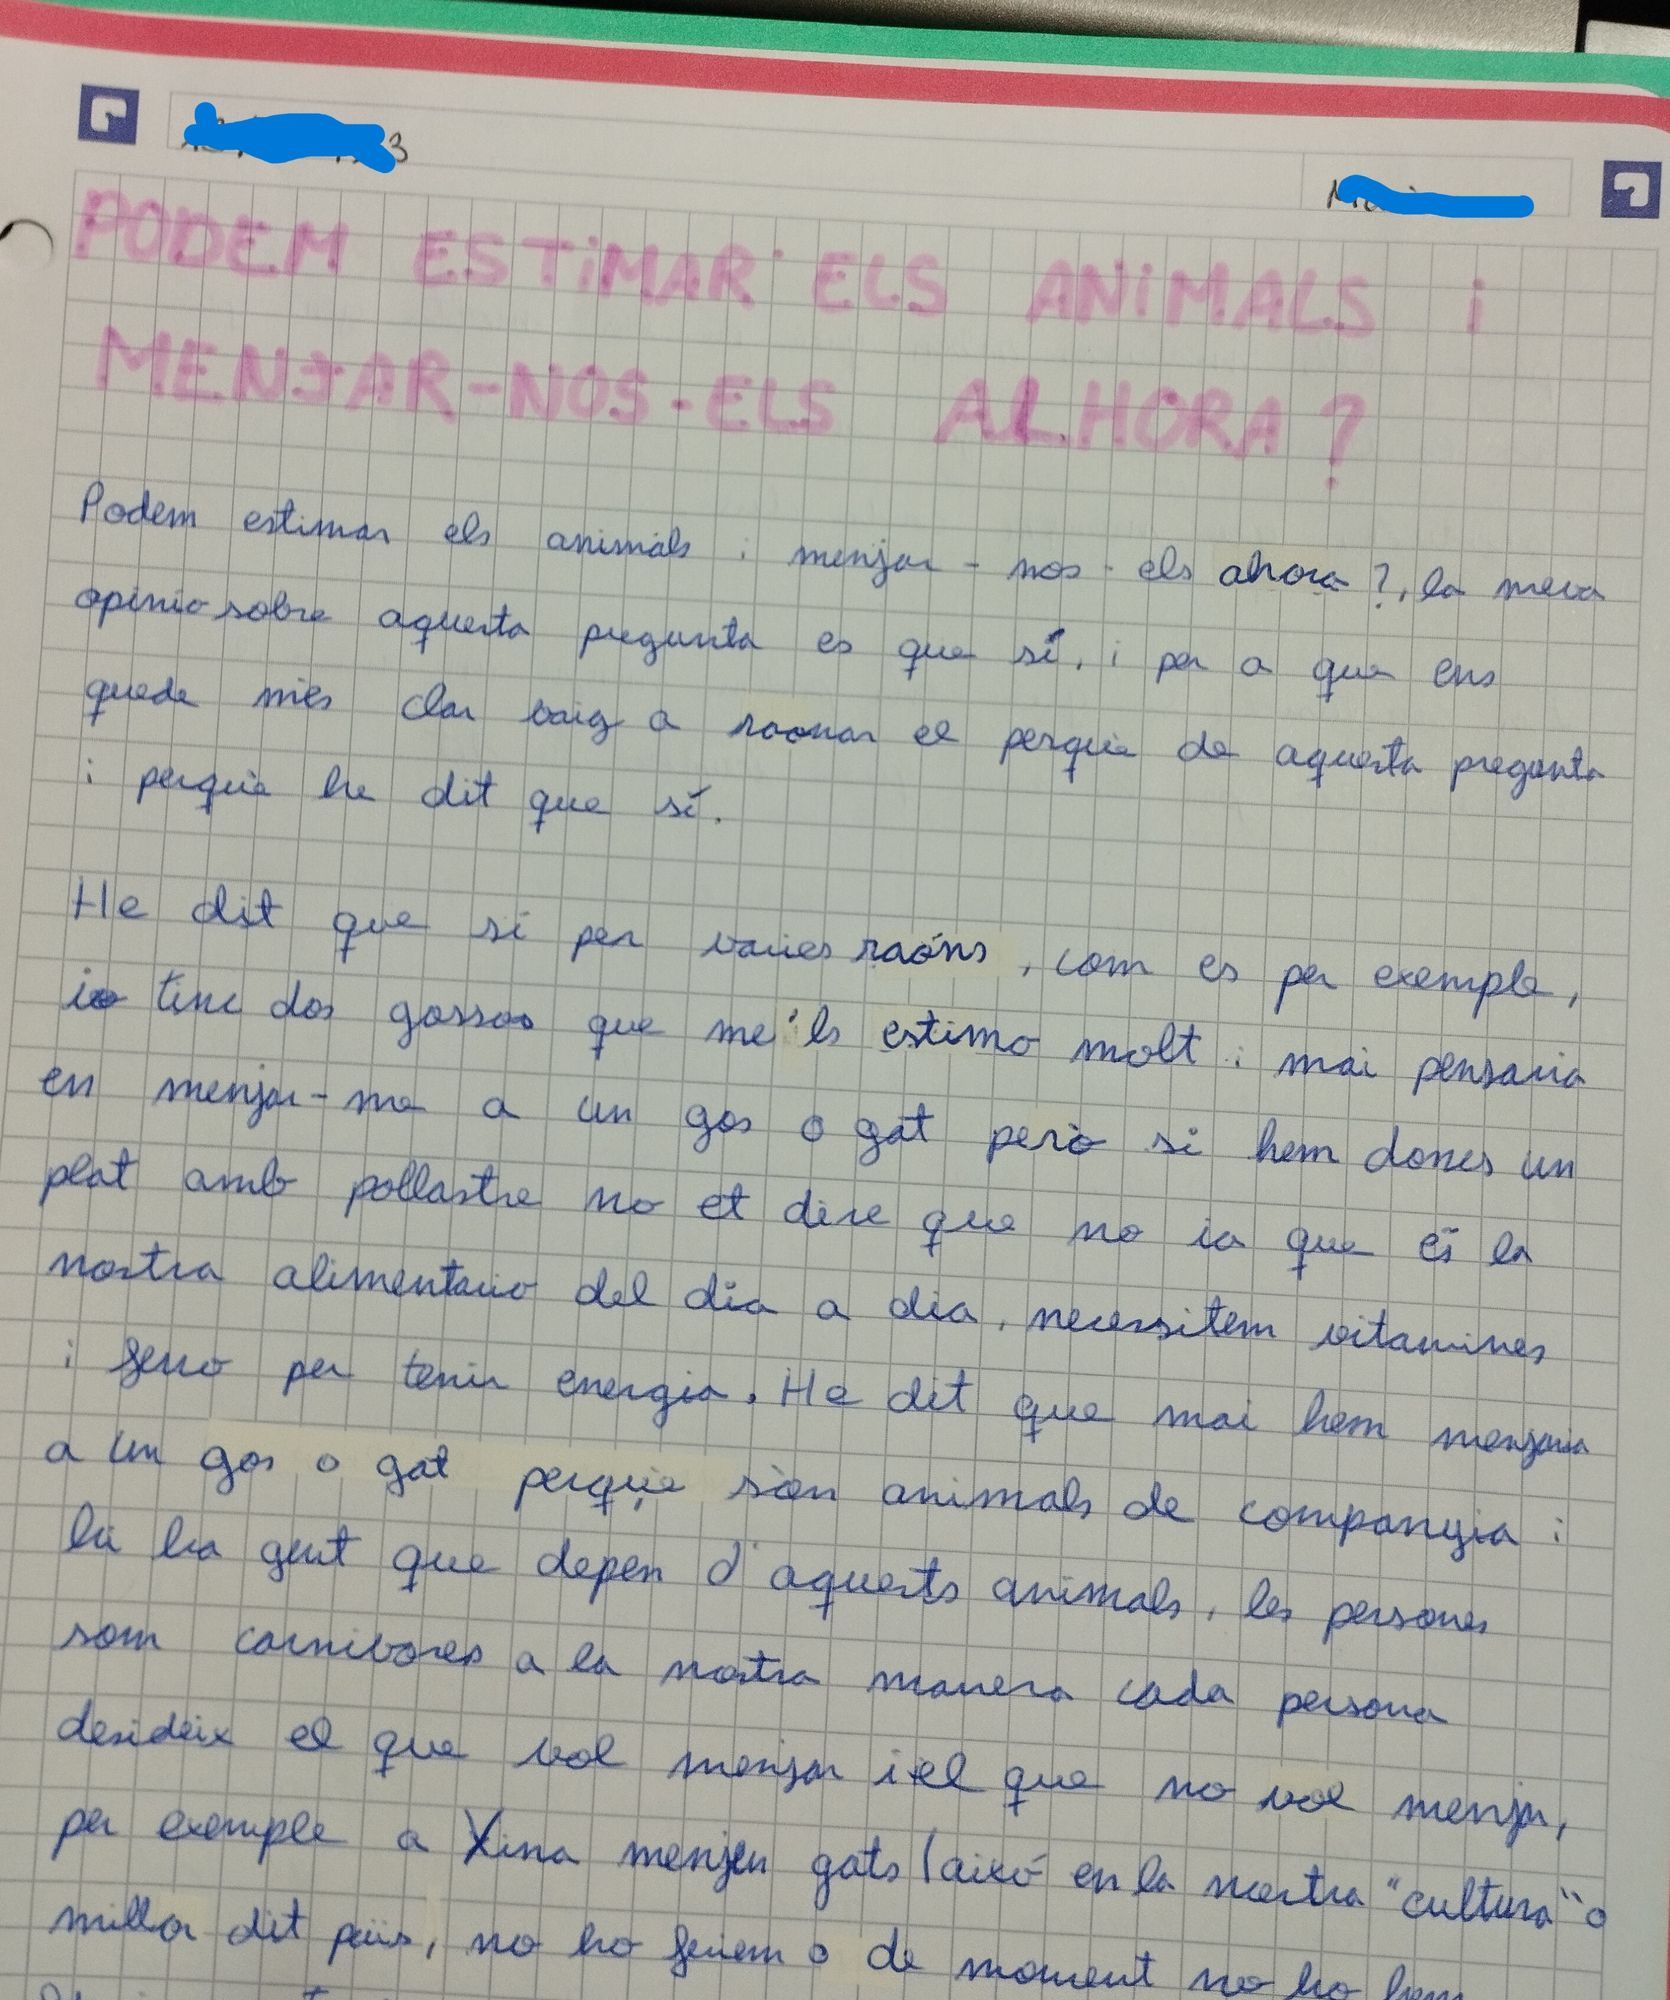 PODEM ESTIMAR ELS ANIMALS i
MENJAR-NOS-ELS ALHORA?
Podem estimar els animals i menjar-nos-els ahora?, la meva
opinio sobre aquesta pregunta es que sí, i per a que ens
quede més clar vaig a raonar el perquè de aquesta pregunta
i perquè he dit que sí.
He dit que sí per varies raóns, com es per exemple,
io tinc dos gossos que me'ls estimo molt i mai pensaria
en menjar-me a un gos o gat però si hem dones un
plat amb pollastre no et dire que no ia que és la
nostra alimentacio del dia a dia, necessitem vitamines
i ferro per tenir energia. He dit que mai hem menjaria
a un gos o gat perquè sòn animals de companyia i
hi ha gent que depen d'aquests animals, les persones
som carnivores a la nostra manera cada persona
desideix el que vol menjar i el que no vol menjar,
per exemple a Xina menjen gats (aixó en la nostra "cultura" o
millor dit país, no ho feriem o de moment no ho hem